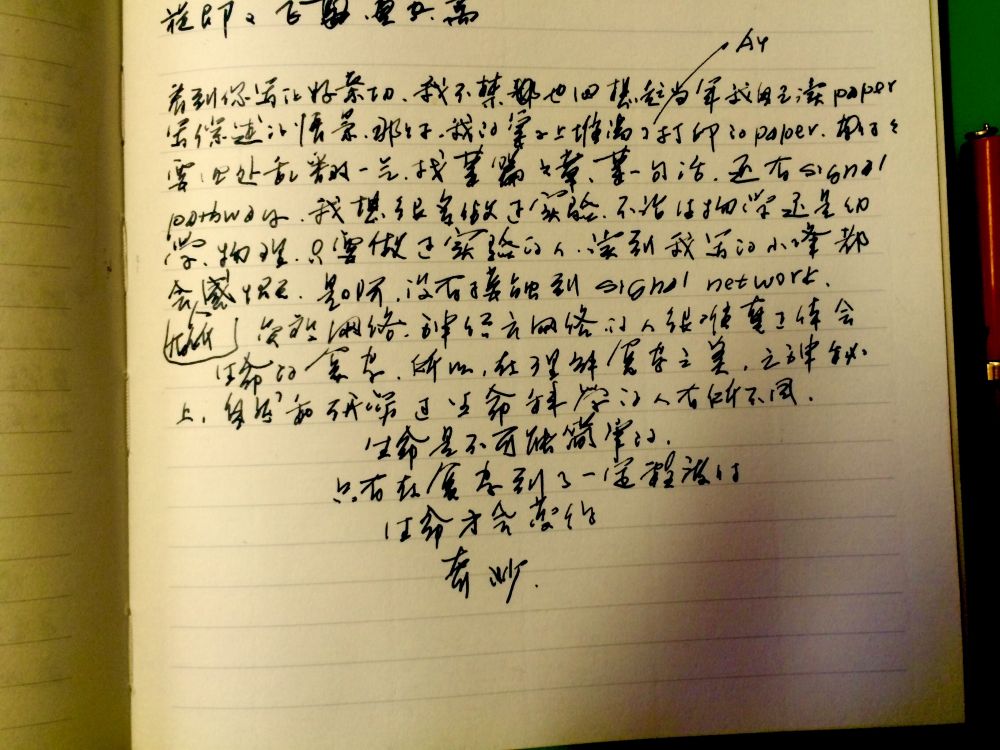 A4
看到你写得好亲切、我不禁也回想起当年我自己读paper
写综述的情景、那时、我的桌子上堆满了打印的paper、为了
要四处乱翻一气、找某篇文章、某一句话、还有signal
pathway、我想很多做过实验、不论生物学还是化
学、物理、只要做过实验的人、读到我写的小 都
会感 是啊、没有接触到signal network、
网络、神经元网络的人很难真正体会
生命的复杂、所以、在理解复杂之美、之神秘
上、 和研究过生命科学的人有所不同.
生命是不可能简单的.
只有在复杂到了一定程度时
生命才会变得
奇妙.